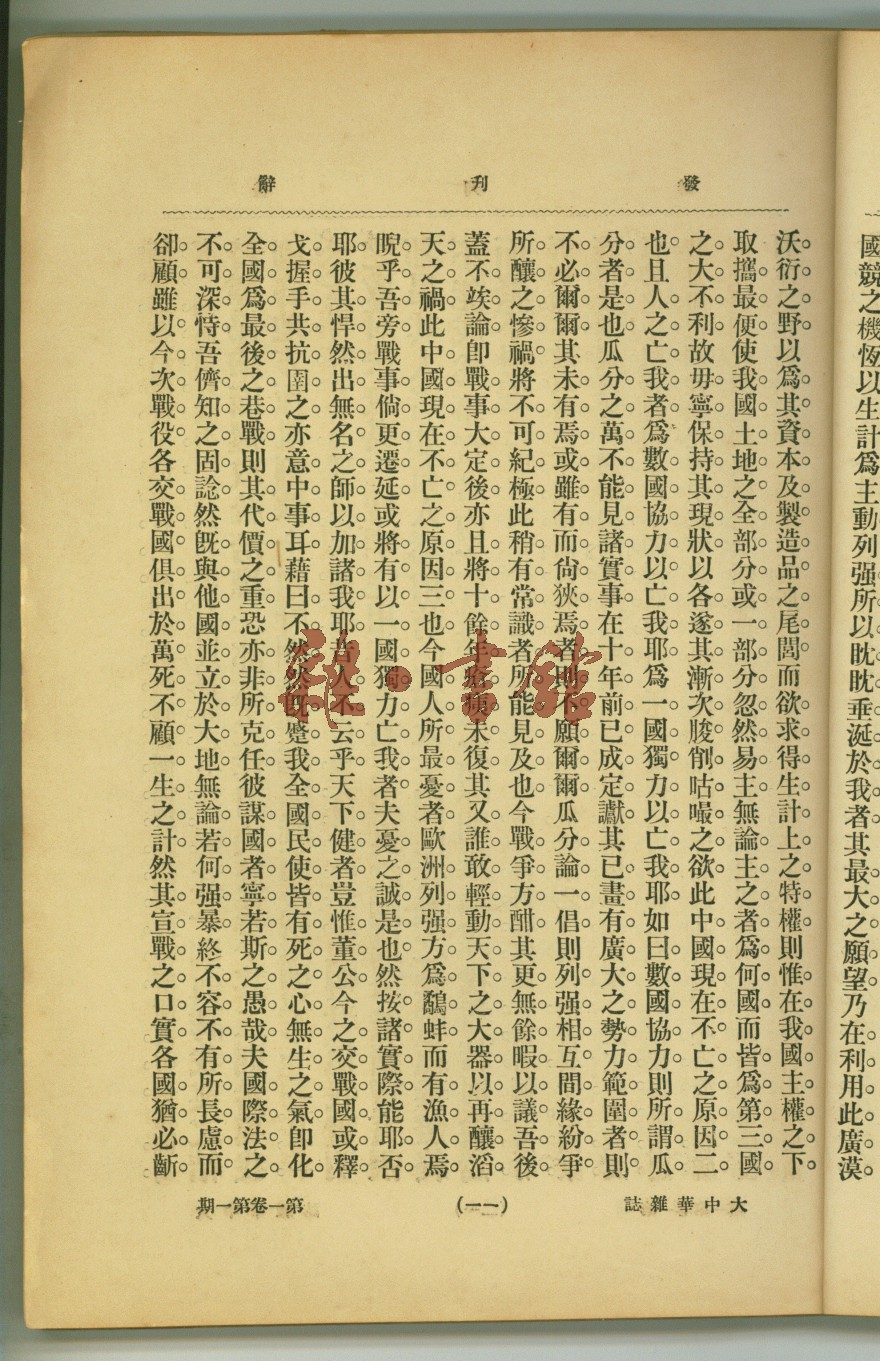 國競之機恆以生計爲主動列强所以眈眈垂涎於我者其最大之願望乃在利用此廣漠
發刊辭
沃衍之野以爲其資本及製造品之尾閭而欲求得生計上之特權則惟在我國主權之下
取攜最便使我國土地之全部分或一部分忽然易主無論主之者爲何國而皆爲第三國
之大不利故毋寧保持其現狀以各遂其漸次朘削咕嘬之欲此中國現在不亡之原因二
也且人之亡我者爲數國協力以亡我耶爲一國獨力以亡我耶如曰數國協力則所謂瓜
分者是也瓜分之萬不能見諸實事在十年前已成定讞其已畫有廣大之勢力範圍者則
不必爾爾其未有焉或雖有而尙狹焉者則不願爾爾瓜分論一倡則列强相互間緣紛爭
所釀之慘禍將不可紀極此稍有常識者所能見及也今戰爭方酣其更無餘暇以議吾後
蓋不竢論卽戰事大定後亦且將十餘年瘡痍未復其又誰敢輕動天下之大器以再釀滔
天之禍此中國現在不亡之原因三也今國人所最憂者歐洲列强方爲鷸蚌而有漁人焉
睨乎吾旁戰事倘更遷延或將有以一國獨力亡我者夫憂之誠是也然按諸實際能耶否
耶彼其悍然出無名之師以加諸我耶昔人不云乎天下健者豈惟董公今之交戰國或釋
戈握手共抗圉之亦意中事耳藉曰不然然既蹙我全國民使皆有死之心無生之氣卽化
全國爲最後之巷戰則其代價之重恐亦非所克任彼謀國者寧若斯之愚哉夫國際法之
不可深恃吾儕知之固諗然旣與他國並立於大地無論若何强暴終不容不有所長慮而
卻顧雖以今次戰役各交戰國俱出於萬死不顧一生之計然其宣戰之口實各國猶必齗
大中華雜誌
（一一）
第一卷第一期
龍·書館